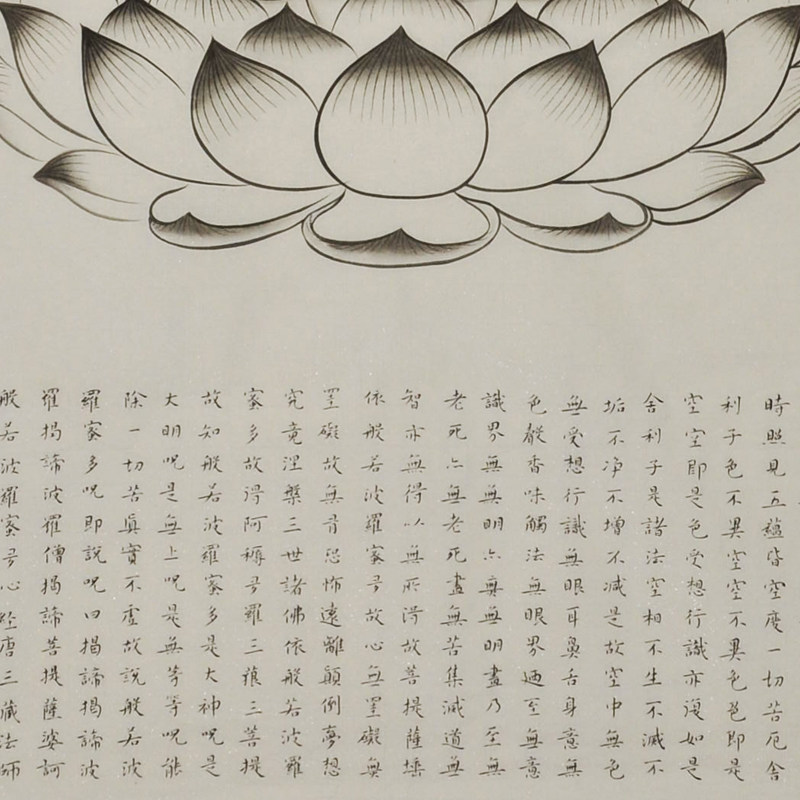 時照見五蘊皆空度一切苦厄舍
利子色不異空空不異色色即是
空空即是色受想行識亦復如是
舍利子是諸法空相不生不滅不
垢不净不增不减是故空中無色
無受想行識無眼耳鼻舌身意無
色聲香味觸法無眼界迺至無意
識界無無明亦無無明盡乃至無
老死亦無老死盡無苦集滅道無
智亦無得以無所得故菩提薩埵
依般若波羅蜜多故心無罣礙無
罣礙故無有恐怖遠離顛倒夢想
究竟涅槃三世諸佛依般若波羅
蜜多故得阿耨多羅三藐三菩提
故知般若波羅蜜多是大神呪是
大明呪是無上呪是無等等呪能
除一切苦眞實不虛故說般若波
羅蜜多呪即說呪曰揭諦揭諦波
羅揭諦波羅僧揭諦菩提薩婆訶
般若波羅蜜多心經唐三藏法師